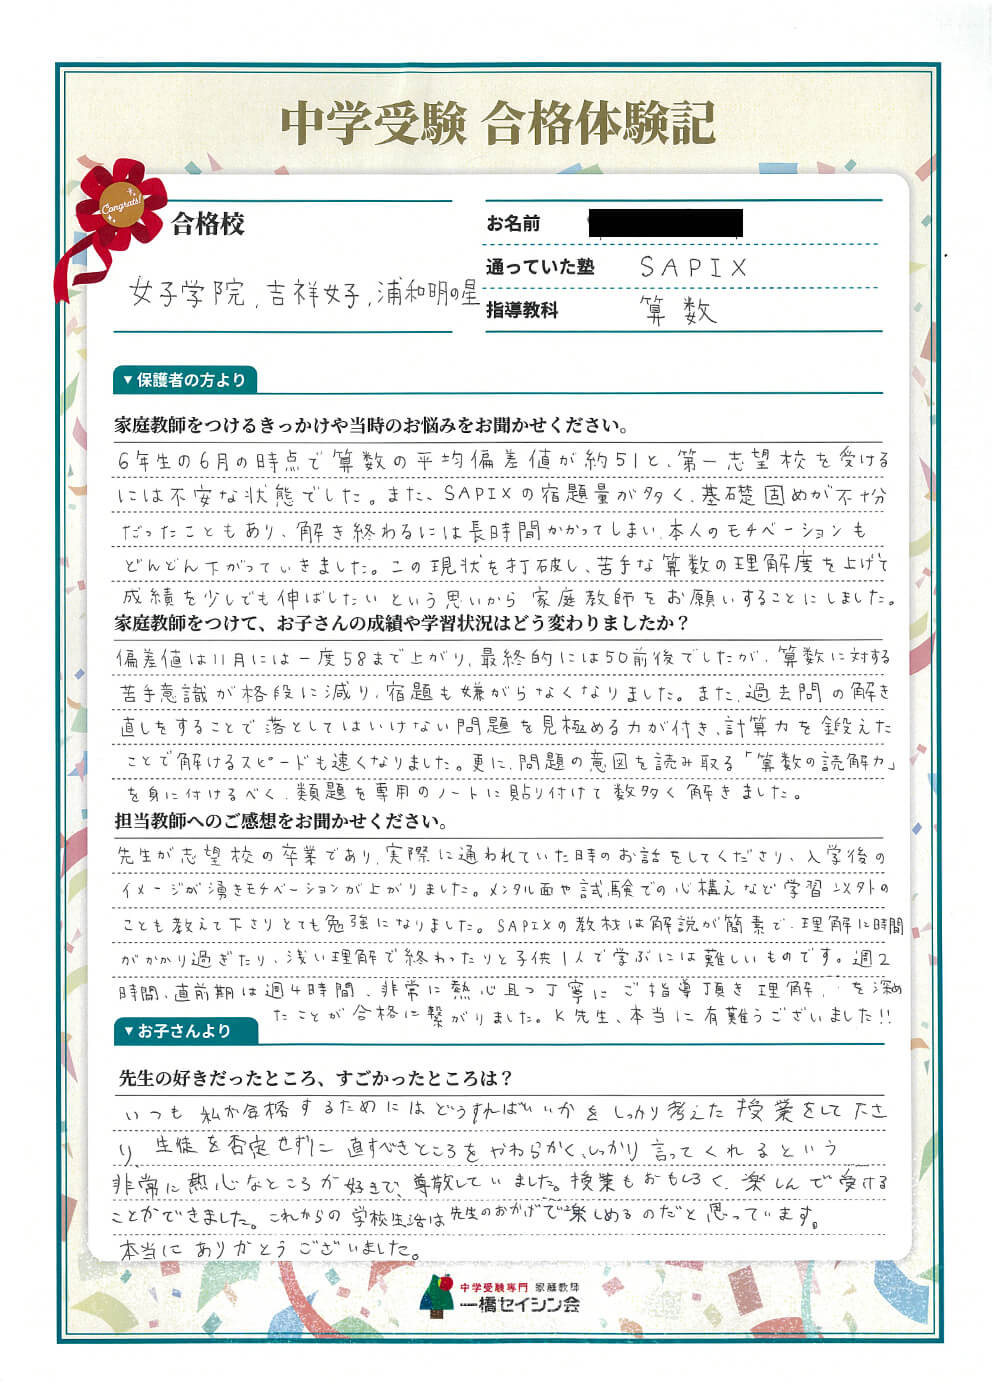 中学受験 合格体験記
Congrats!
合格校
女子学院, 吉祥女子, 浦和明の星
お名前
通っていた塾 SAPIX
指導教科 算数
▼保護者の方より
家庭教師をつけるきっかけや当時のお悩みをお聞かせください。
6年生の6月の時点で算数の平均偏差値が約51と、第一志望校を受ける
には不安な状態でした。また、SAPIXの宿題量が多く、基礎固めが不十分
だったこともあり、解き終わるには長時間かかってしまい、本人のモチベーションも
どんどん下がっていきました。この現状を打破し、苦手な算数の理解度を上げて
成績を少しでも伸ばしたいという思いから家庭教師をお願いすることにしました。
家庭教師をつけて、お子さんの成績や学習状況はどう変わりましたか？
偏差値は11月には一度58まで上がり、最終的には50前後でしたが、算数に対する
苦手意識が格段に減り、宿題も嫌がらなくなりました。また、過去問の解き
直しをすることで落としてはいけない問題を見極める力が付き、計算力を鍛えた
ことで解けるスピードも速くなりました。更に、問題の意図を読み取る「算数の読解力」
を身に付けるべく、類題を専用のノートに貼り付けて数多く解きました。
担当教師へのご感想をお聞かせください。
先生が志望校の卒業であり、実際に通われていた時のお話をしてくださり、入学後の
イメージが湧きモチベーションが上がりました。メンタル面や試験での心構えなど学習以外の
ことも教えて下さりとても勉強になりました。SAPIXの教材は解説が簡素で、理解に時間
がかかり過ぎたり、浅い理解で終わったりと子供1人で学ぶには難しいものです。週2
時間、直前期は週4時間、非常に熱心且つ丁寧にご指導頂き理解、を深め
たことが合格に繋がりました。K先生、本当に有難うございました!!
▼お子さんより
先生の好きだったところ、すごかったところは？
いつも私が合格するためにはどうすればいいかをしっかり考えた授業をして下さ
り、生徒を否定せずに直すべきところをやわらかく、しっかり言ってくれるという
非常に熱心なところが好きで、尊敬していました。授業もおもしろく、楽しんで受ける
ことができました。これからの学校生活は先生のおかげで楽しめるのだと思っています。
本当にありがとうございました。
中学受験専門 家庭教師
一橋セイシン会